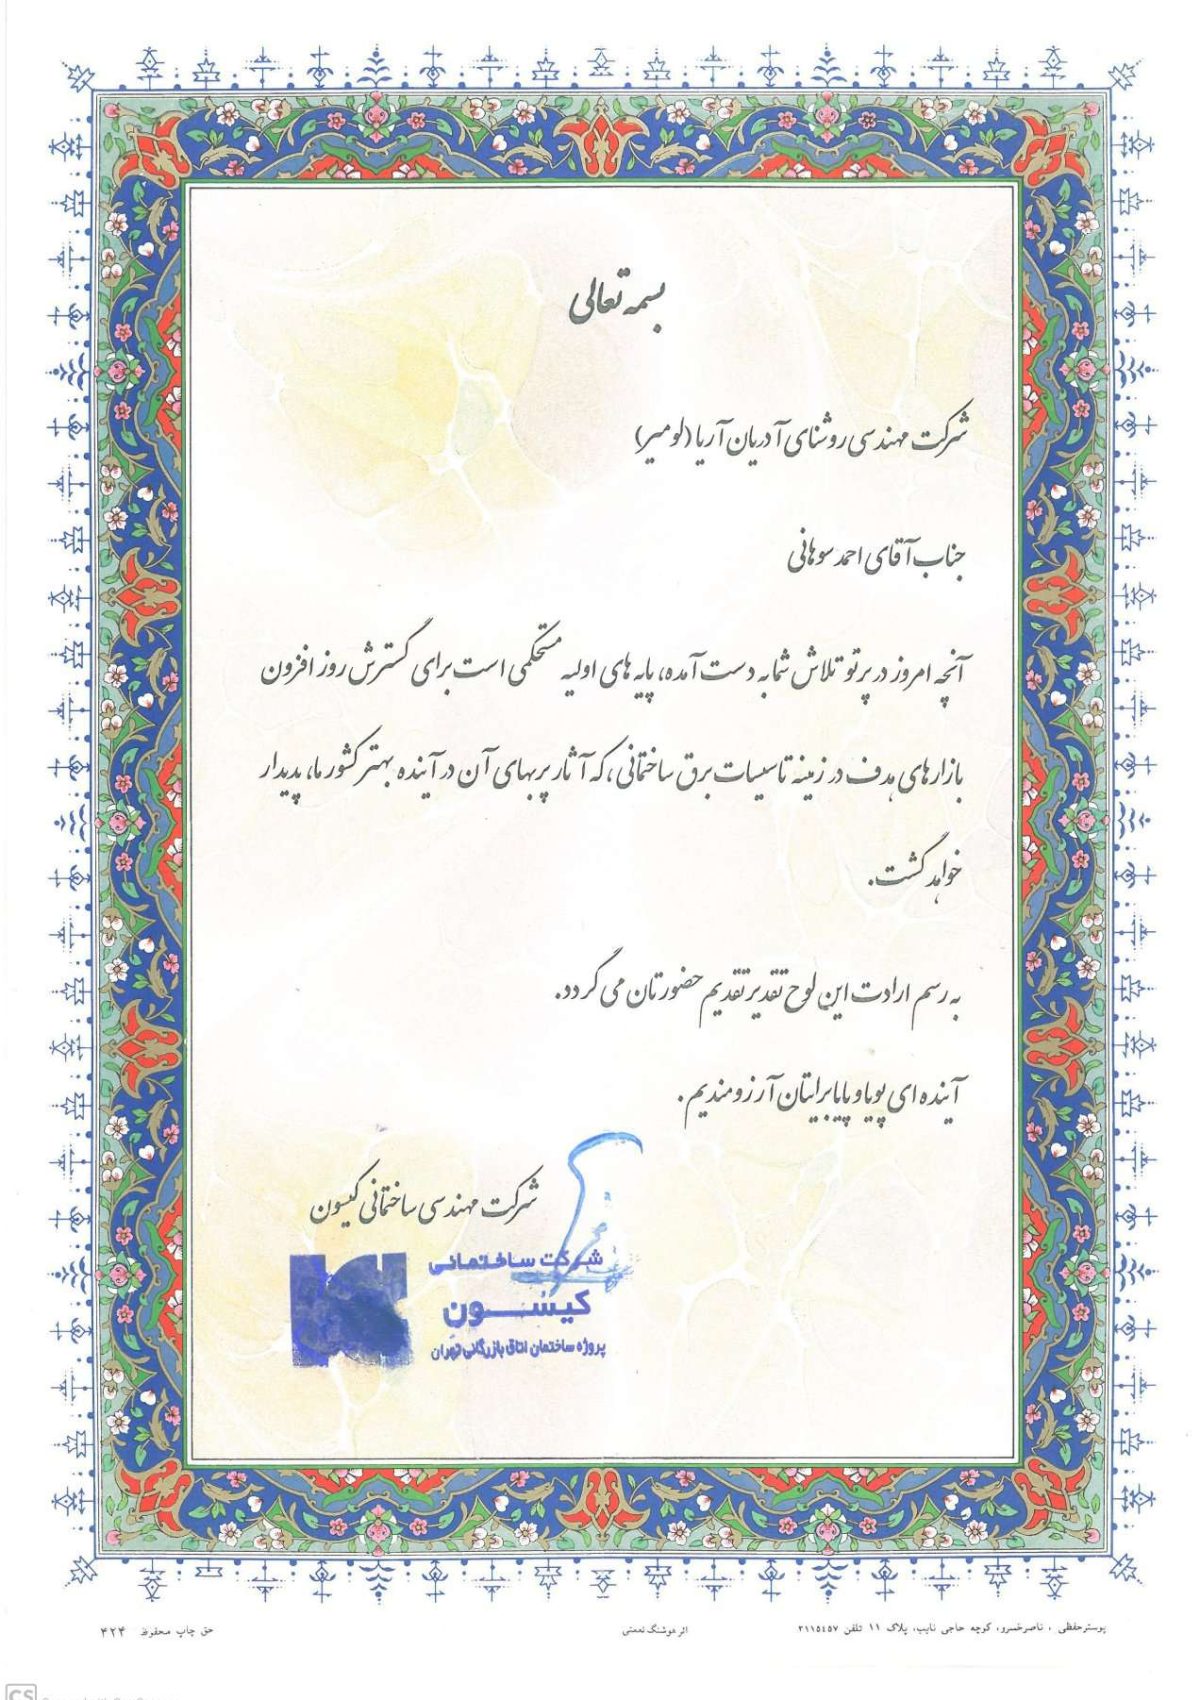 بسمه تعالی
شرکت مهندسی روشنای آدریان آریا (لومیر)
جناب آقای احمد سوهانی
آنچه امروز در پرتو تلاش شما به دست آمده، پایه های اولیه مستحکمی است برای گسترش روز افزون
بازارهای هدف در زمینه تاسیسات برق ساختمانی، که آثار پربهای آن در آینده بهتر کشور ما، پدیدار
خواهد گشت.
به رسم ارادت این لوح تقدیر تقدیم حضورتان می گردد.
آینده ای پویا و پایا برایتان آرزومندیم.
شرکت مهندسی ساختمانی کیسون
شرکت ساختمانی
کیسون
پروژه ساختمان اتاق بازرگانی تهران
پوستر حفظی ، ناصرخسرو، کوچه حاجی نایب، پلاک ۱۱ تلفن ۳۱۱۵۴۵۷
اثر هوشنگ نعمتی
حق چاپ محفوظ ۴۲۴
CS